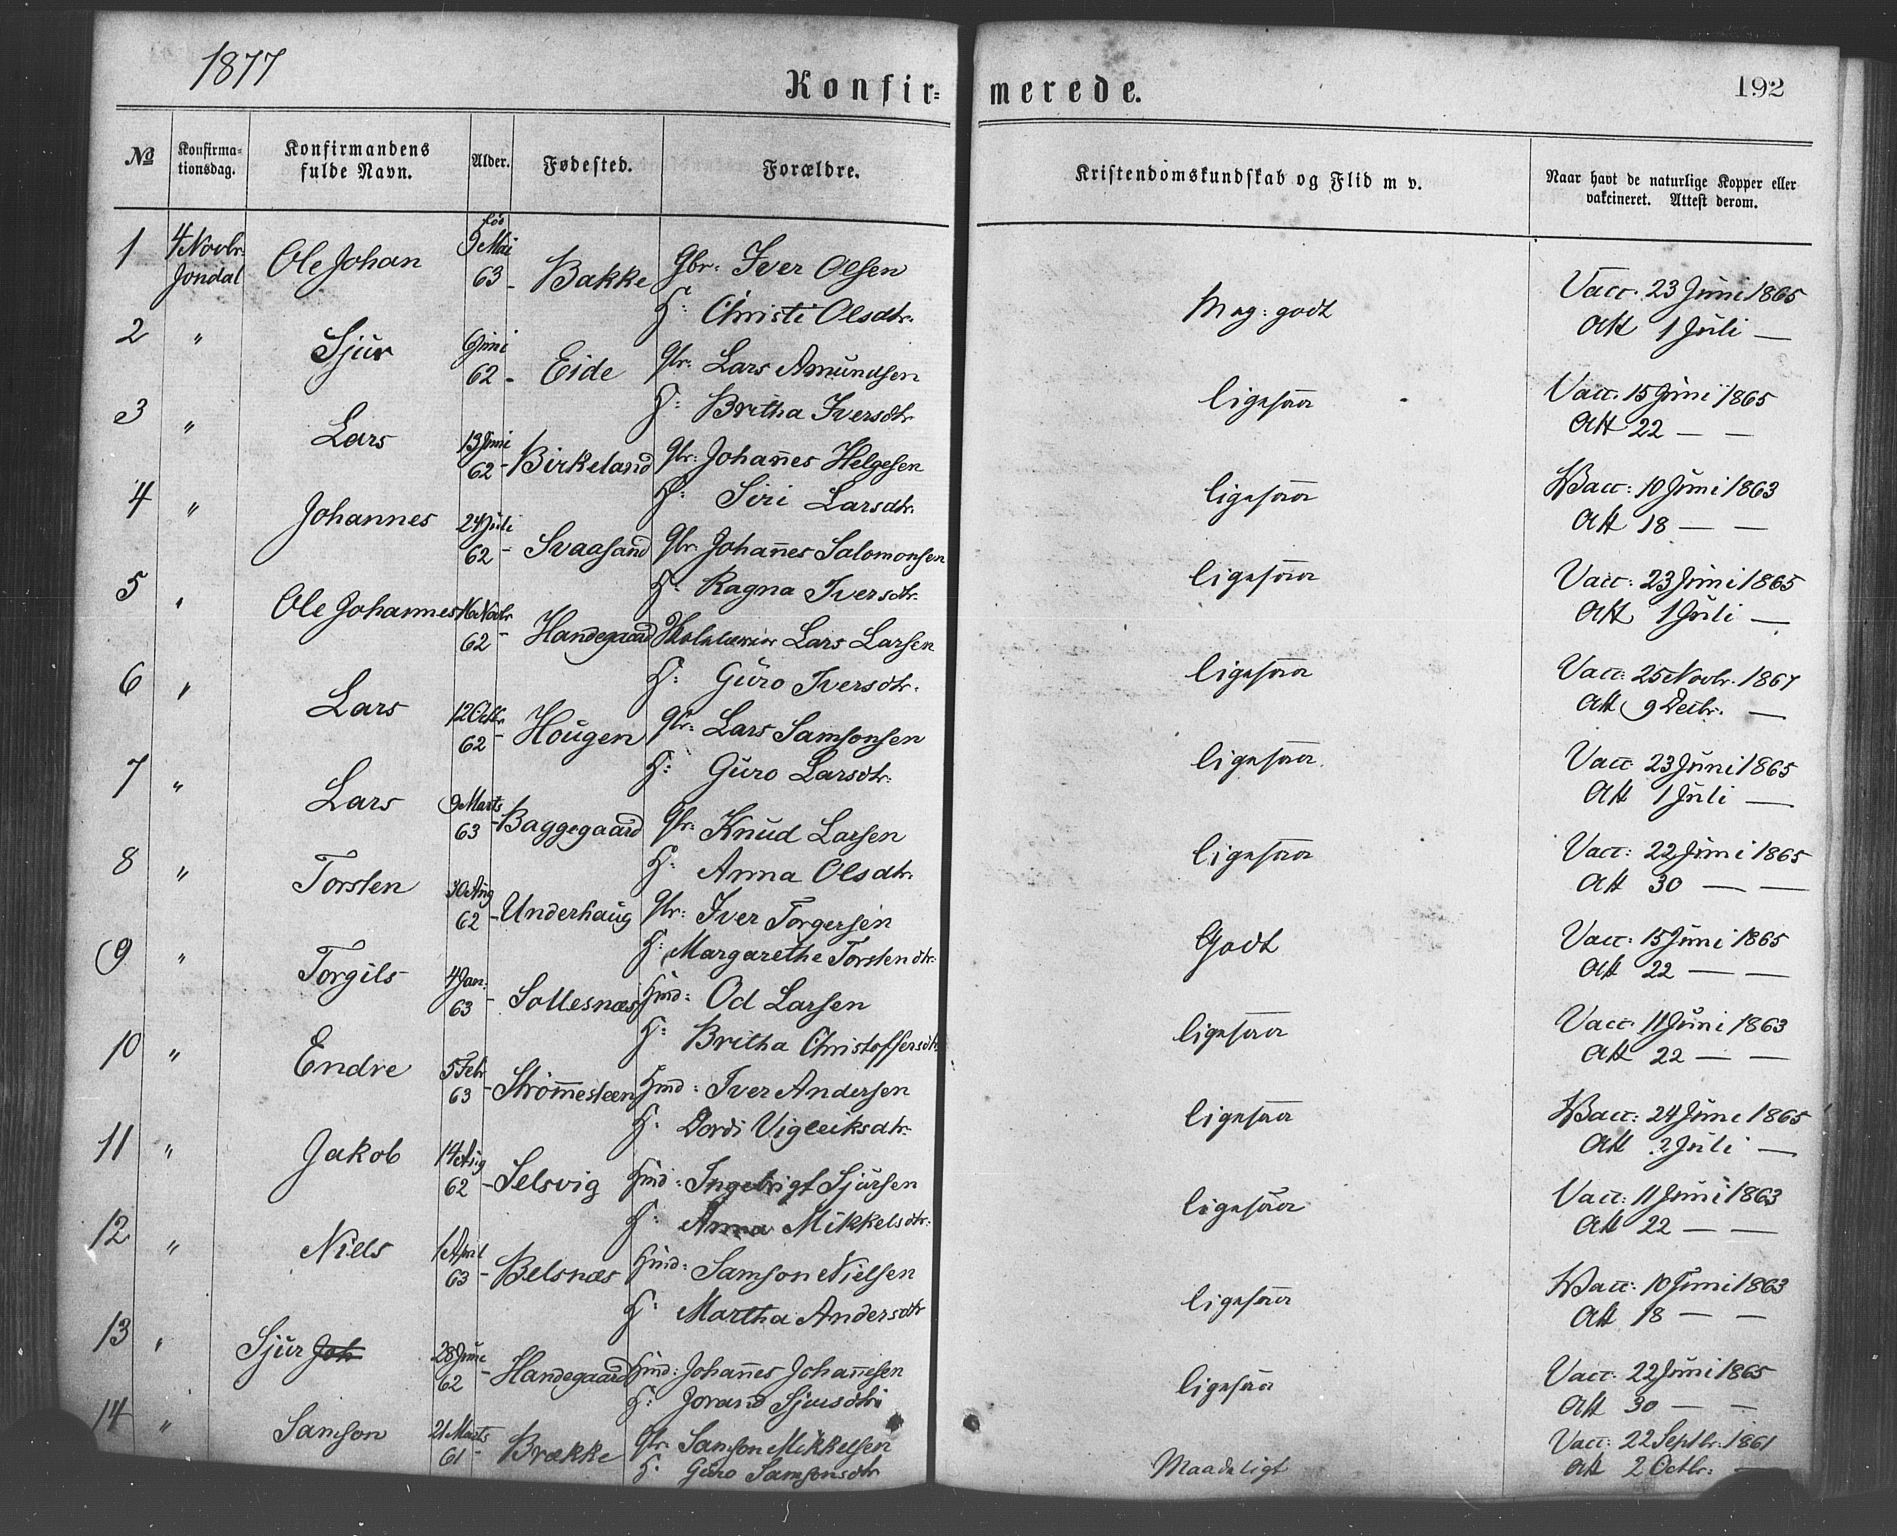 1877
Konfir- merede.
192
No
Konfirma-
tionsdag.
Konfirmandens
fulde Navn.
Alder.
Fødested.
Forældre.
Kristendomskundskab og Flid m v.
Naar havt de naturlige Kopper eller
vakcineret. Attest derom.
1 4 Novbr. Jondal Ole Johan fød 9 Mai 63 - Bakke Gbr: Iver Olsen
H: Christi Olsdtr.
Meg: godt
Vacc: 23 Juni 1865
Att 1 Juli —
2 " Sjur 6 Juni 62 - Eide Gbr: Lars Amundsen
H: Britha Iversdtr.
ligesaa
Vacc: 15 Juni 1865
Att 22 — —
3 " Lars 13 Juni 62 - Birkeland Gbr: Johan̄es Helgesen
H: Siri Larsdtr.
ligesaa
Vacc: 10 Juni 1863
Att 18 — —
4 " Johannes 24 Juli 62 - Svaasand Gbr: Johan̄es Salomonsen
H: Ragna Iversdtr.
ligesaa
Vacc: 23 Juni 1865
Att 1 Juli —
5 " Ole Johannes 16 Novbr 62 - Handegaard Skolelærer Lars Larsen
H: Guro Iversdtr.
ligesaa
Vacc: 25 Novbr. 1867
Att 9 Decbr. —
6 " Lars 12 Octbr 62 - Hougen Gbr: Lars Samsonsen
H: Guro Larsdtr.
ligesaa
Vacc: 23 Juni 1865
Att 1 Juli —
7 " Lars 9 Marts 63 - Baggegaard Gbr: Knud Larsen
H: Anna Olsdtr.
ligesaa
Vacc: 22 Juni 1865
Att 30 — —
8 " Torsten 30 Aug 62 - Underhaug Gbr: Iver Torgersen
H: Margarethe Torstendtr.
Godt
Vacc: 15 Juni 1865
Att 22 — —
9 " Torgils 4 Jan: 63 - Sollesnæs Hmd: Od Larsen
H: Britha Christoffersdtr.
ligesaa
Vacc: 11 Juni 1863
Att 22 — —
10 " Endre 5 Febr 63 - Strøm̄esteen Hmd: Iver Andersen
H: Dordi Vigleiksdtr.
ligesaa
Vacc: 24 Juni 1865
Att 2 Juli —
11 " Jakob 14 Aug 62 - Selsvig Hmd: Ingebrigt Sjursen
H: Anna Mikkelsdtr.
ligesaa
Vacc: 11 Juni 1863
Att 22 — —
12 " Niels 1 April 63 - Belsnæs Hmd: Samson Nielsen
H: Martha Andersdtr
ligesaa
Vacc: 10 Juni 1863
Att 18 — —
13 " Sjur Joh 28 June 62 - Handegaard Hmd: Johan̄es Johan̄esen
H: Jorand Sjursdtr
ligesaa
Vacc: 22 Juni 1865
Att 30 — —
14 " Samson 21 Marts 61 - Brække Gbr. Samson Mikkelsen
H: Guro Samsonsdtr
Maadeligt
Vacc: 22 Septbr. 1861
Att 2 Octbr: —